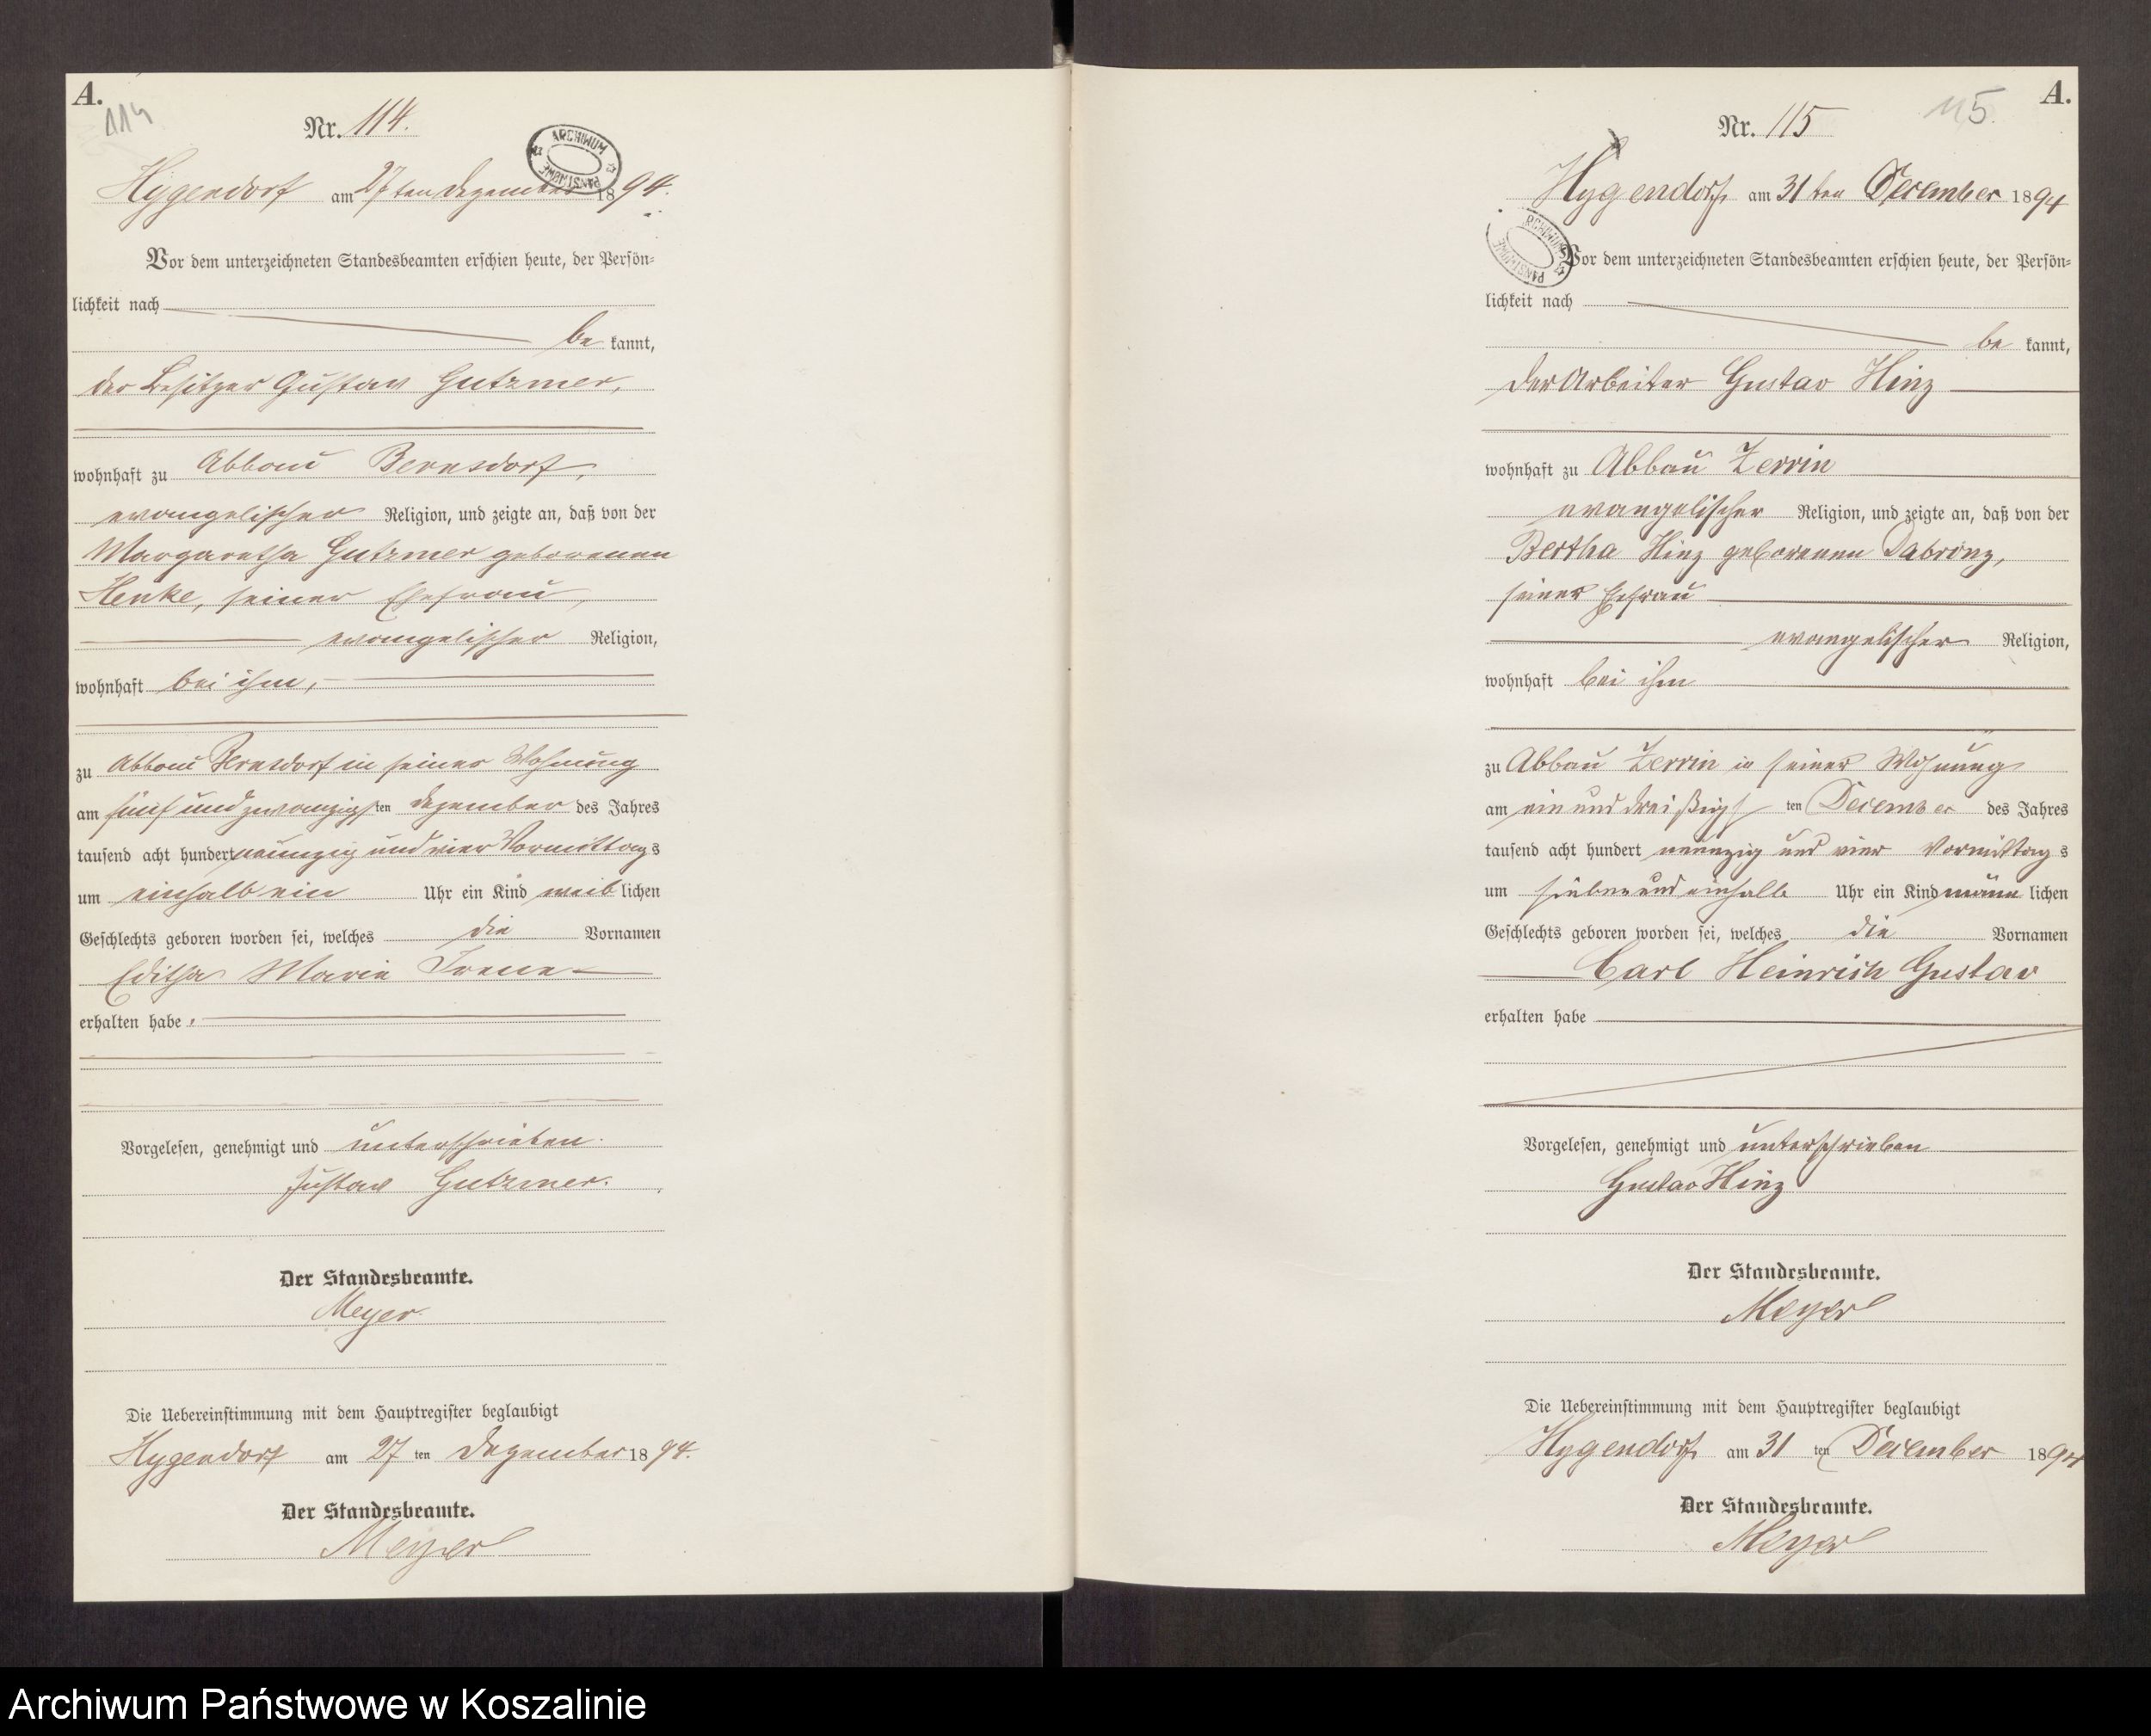 A.
114
Nr. 114.
ARCHIWUM PAŃSTWOWE
Hygendorf am 27ten Dezember 1894.
Vor dem unterzeichneten Standesbeamten erschien heute, der Persön-
lichkeit nach
be kannt,
der Besitzer Gustav Gutzmer,
wohnhaft zu Abbau Bernsdorf,
evangelischer Religion, und zeigte an, daß von der
Margaretha Gutzmer geborenen
Henke, seiner Ehefrau,
evangelischer Religion,
wohnhaft bei ihm,
zu Abbau Bernsdorf in seiner Wohnung
am fünf und zwanzigsten Dezember des Jahres
tausend acht hundert neunzig und vier Vormittags
um einhalb ein Uhr ein Kind weiblichen
Geschlechts geboren worden sei, welches die Vornamen
Editha Marie Irene
erhalten habe.
Vorgelesen, genehmigt und unterschrieben.
Gustav Gutzmer.
Der Standesbeamte.
Meyer.
Die Uebereinstimmung mit dem Hauptregister beglaubigt
Hygendorf am 27 ten Dezember 1894.
Der Standesbeamte.
Meyer
A.
115
Nr. 115
Hygendorf am 31ten December 1894
ARCHIWUM PAŃSTWOWE
Vor dem unterzeichneten Standesbeamten erschien heute, der Persön-
lichkeit nach
be kannt,
der Arbeiter Gustav Hinz
wohnhaft zu Abbau Zerrin
evangelischer Religion, und zeigte an, daß von der
Bertha Hinz geborenen Dabronz,
seiner Ehefrau
evangelischer Religion,
wohnhaft bei ihm
zu Abbau Zerrin in seiner Wohnung
am ein und dreißigsten December des Jahres
tausend acht hundert neunzig und vier Vormittags
um sieben und einhalb Uhr ein Kind männlichen
Geschlechts geboren worden sei, welches die Vornamen
Carl Heinrich Gustav
erhalten habe
Vorgelesen, genehmigt und unterschrieben
Gustav Hinz
Der Standesbeamte.
Meyer
Die Uebereinstimmung mit dem Hauptregister beglaubigt
Hygendorf am 31 ten December 1894
Der Standesbeamte.
Meyer
Archiwum Państwowe w Koszalinie